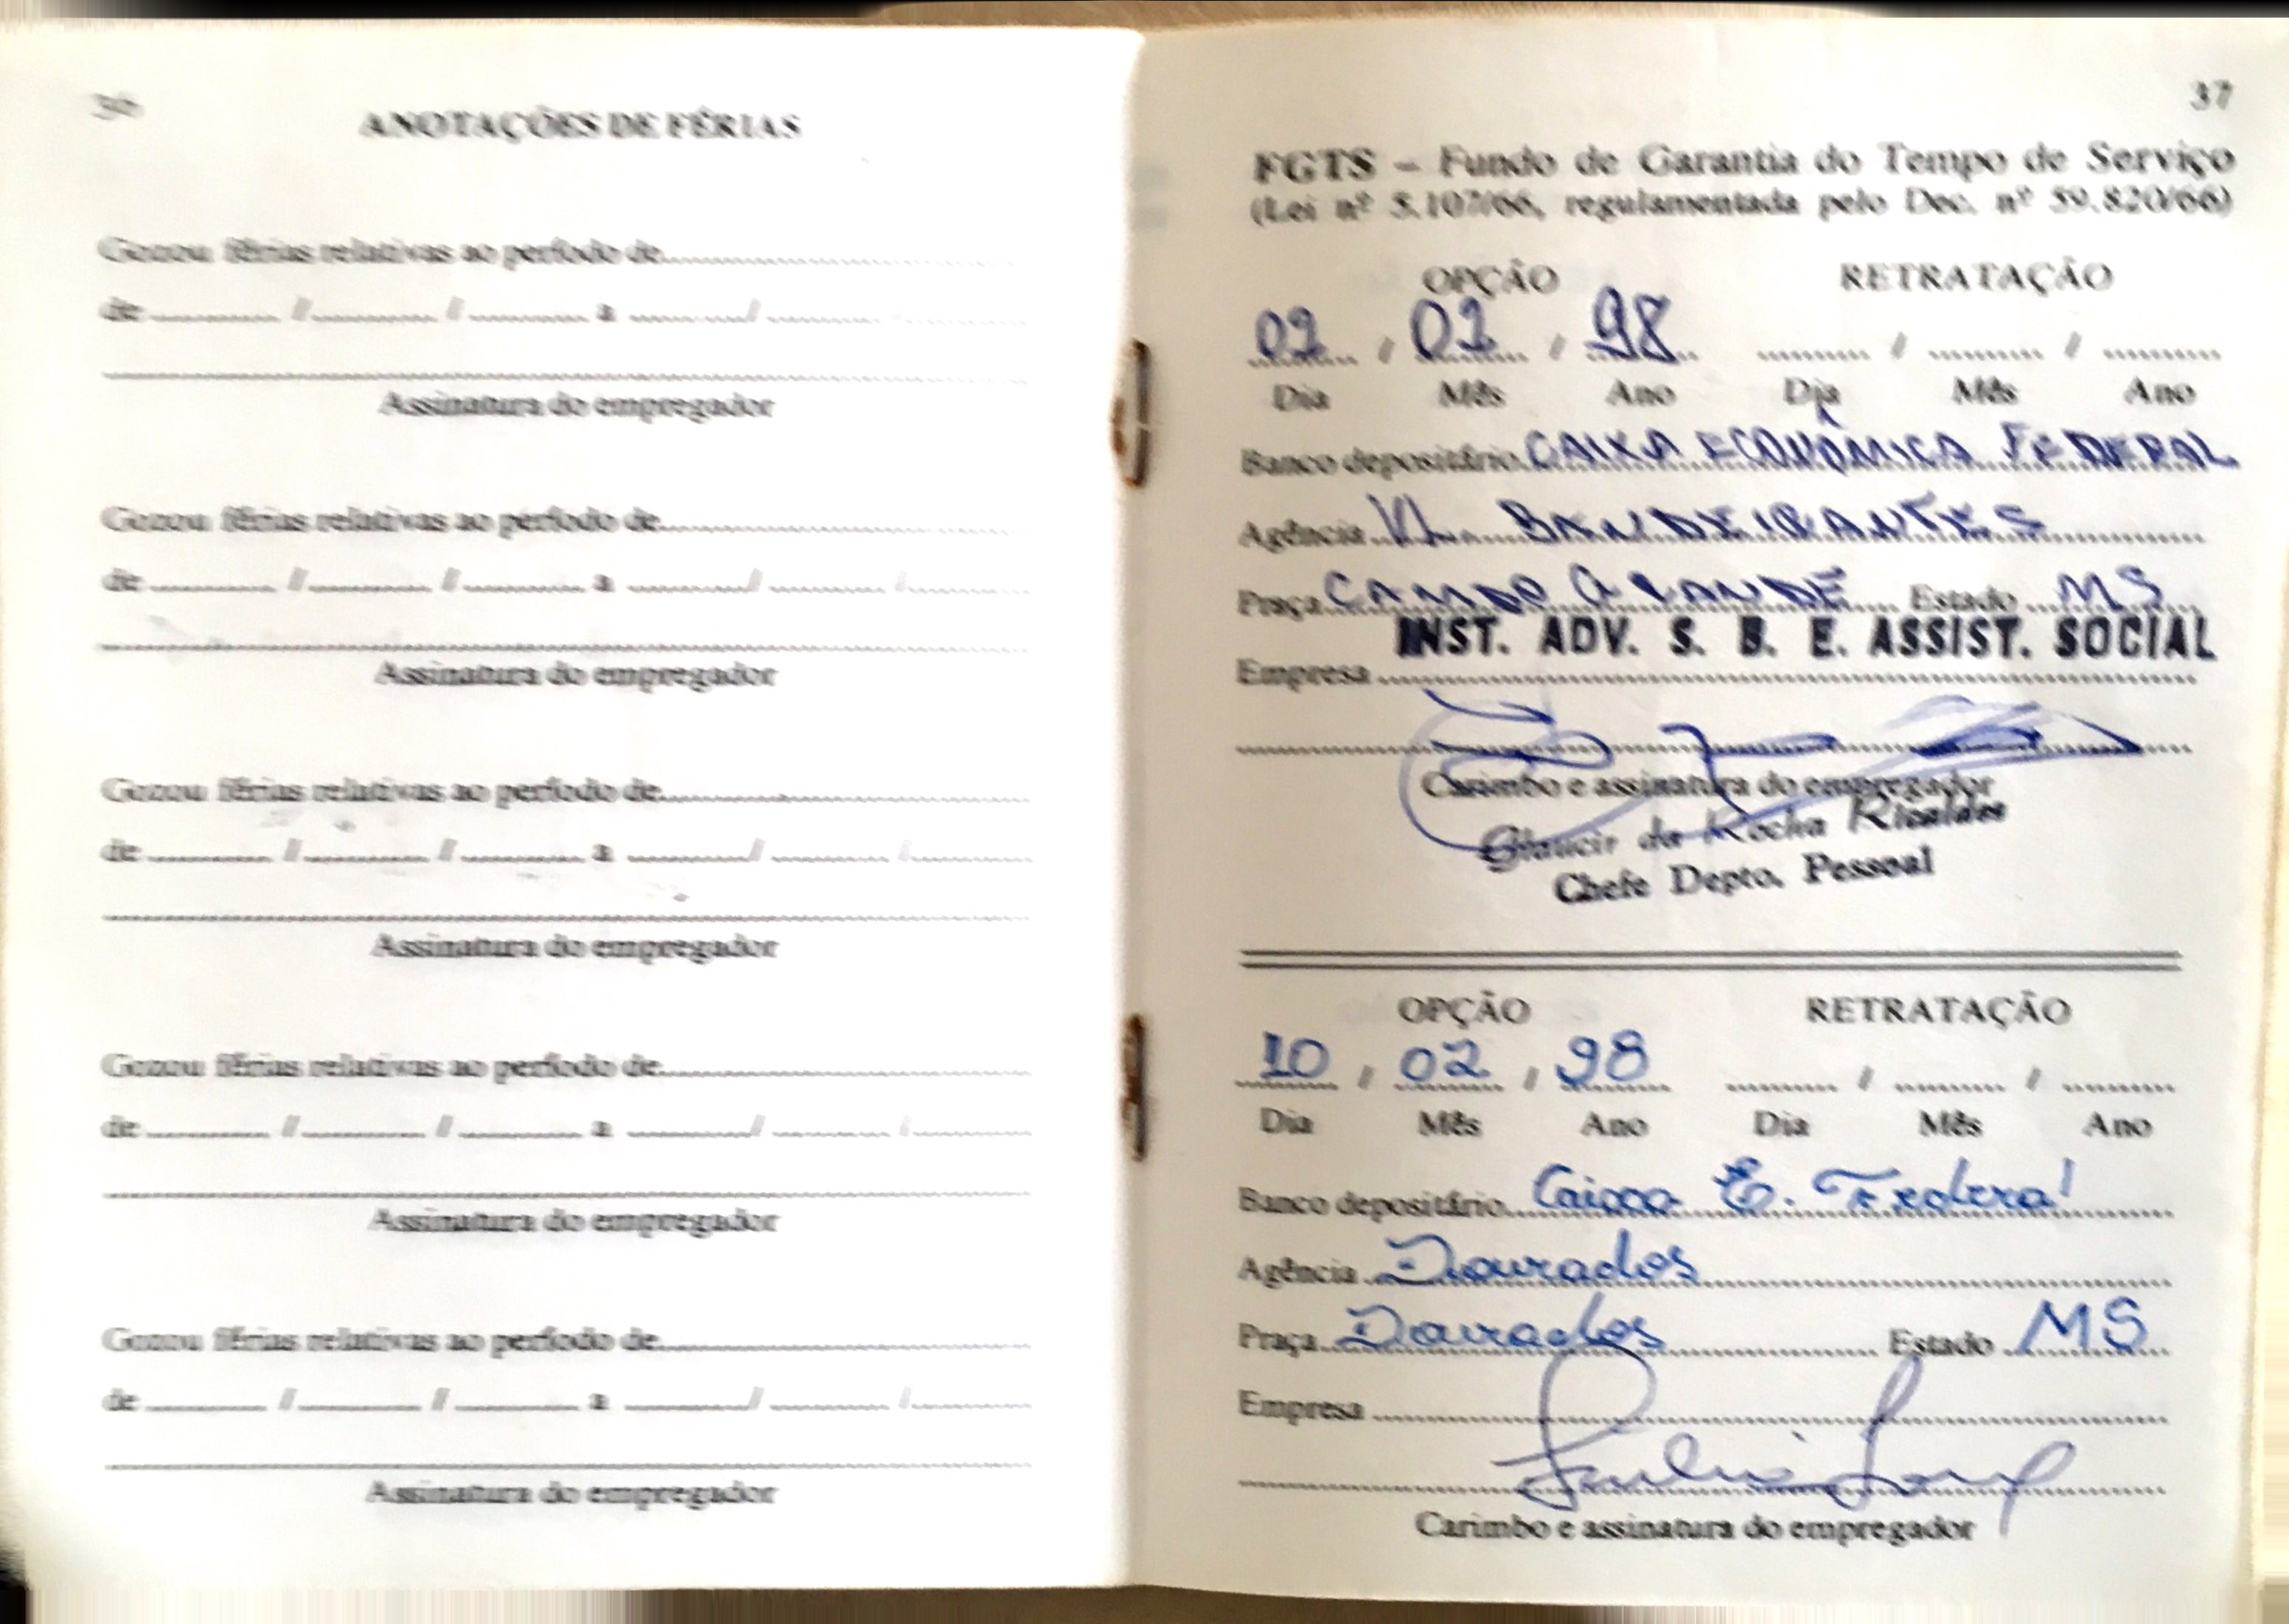 36
ANOTAÇÕES DE FÉRIAS
Gozou férias relativas ao período de
de / / a / /
Assinatura do empregador
Gozou férias relativas ao período de
de / / a / /
Assinatura do empregador
Gozou férias relativas ao período de
de / / a / /
Assinatura do empregador
Gozou férias relativas ao período de
de / / a / /
Assinatura do empregador
Gozou férias relativas ao período de
de / / a / /
Assinatura do empregador
37
FGTS – Fundo de Garantia do Tempo de Serviço
(Lei nº 5.107/66, regulamentada pelo Dec. nº 59.820/66)
OPÇÃO RETRATAÇÃO
02 / 02 / 98 / /
Dia Mês Ano Dia Mês Ano
Banco depositário CAIXA ECONÔMICA FEDERAL
Agência VL. BANDEIRANTES
Praça CAMPO GRANDE Estado MS
INST. ADV. S. B. E. ASSIST. SOCIAL
Empresa
Carimbo e assinatura do empregador
Glaucir da Rocha Ricaldes
Chefe Depto. Pessoal
OPÇÃO RETRATAÇÃO
10 / 02 / 98 / /
Dia Mês Ano Dia Mês Ano
Banco depositário Caixa E. Federal
Agência Dourados
Praça Dourados Estado MS
Empresa
Carimbo e assinatura do empregador